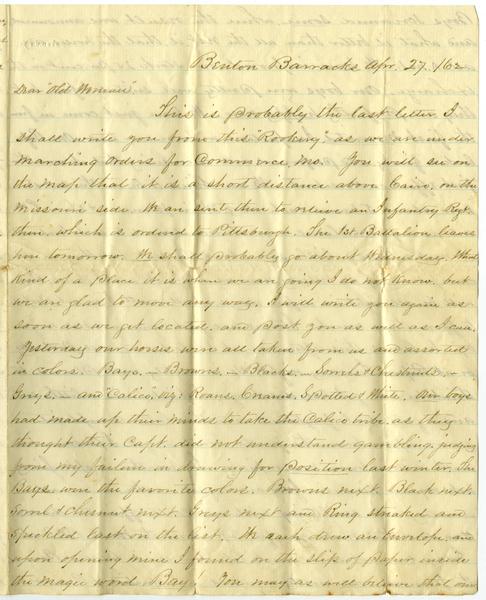 Benton Barracks Apr. 27. /62
Dear "Old Woman"
This is probably the last letter I
shall write you from this "Rookery" as we are under
marching orders for Commerce, Mo. You will see on
the map that it is a short distance above Cairo, on the
Missouri side. We are sent there to relieve an Infantry Regt.
there, which is ordered to Pittsburgh. The 1st Battalion leaves
here tomorrow. We shall probably go about Wednesday. What
kind of a place it is where we are going I do not know, but
we are glad to move any way. I will write you again as
soon as we get located, and post you as well as I can.
Yesterday our horses were all taken from us and assorted
in colors. Bays. – Browns. – Blacks. – Sorrels & Chestnuts –
Greys. – and "Calico," viz: Roans. Creams. Spotted & White. Our boys
had made up their minds to take the Calico tribe, as they
thought their Capt. did not understand gambling, judging
from my failure in drawing for position last winter. The
Bays were the favorite colors. Browns next. Black next.
Sorrel & Chesnut next. Greys next and Ring streaked and
Speckled last on the list. We each drew an Envelope and
upon opening mine I found on the slip of paper inside
the magic word Bay! You may as well believe that our